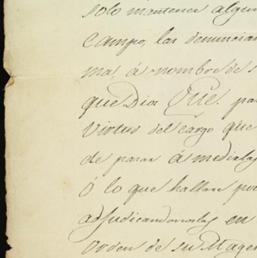 solo mantener algun
Campo, las denuncian
mas, á nombre de s
que Dios Gũe. par
virtud del Cargo que
de parar á medias
ó lo que hallan por
adjudicandoselas en
orden de su Mage